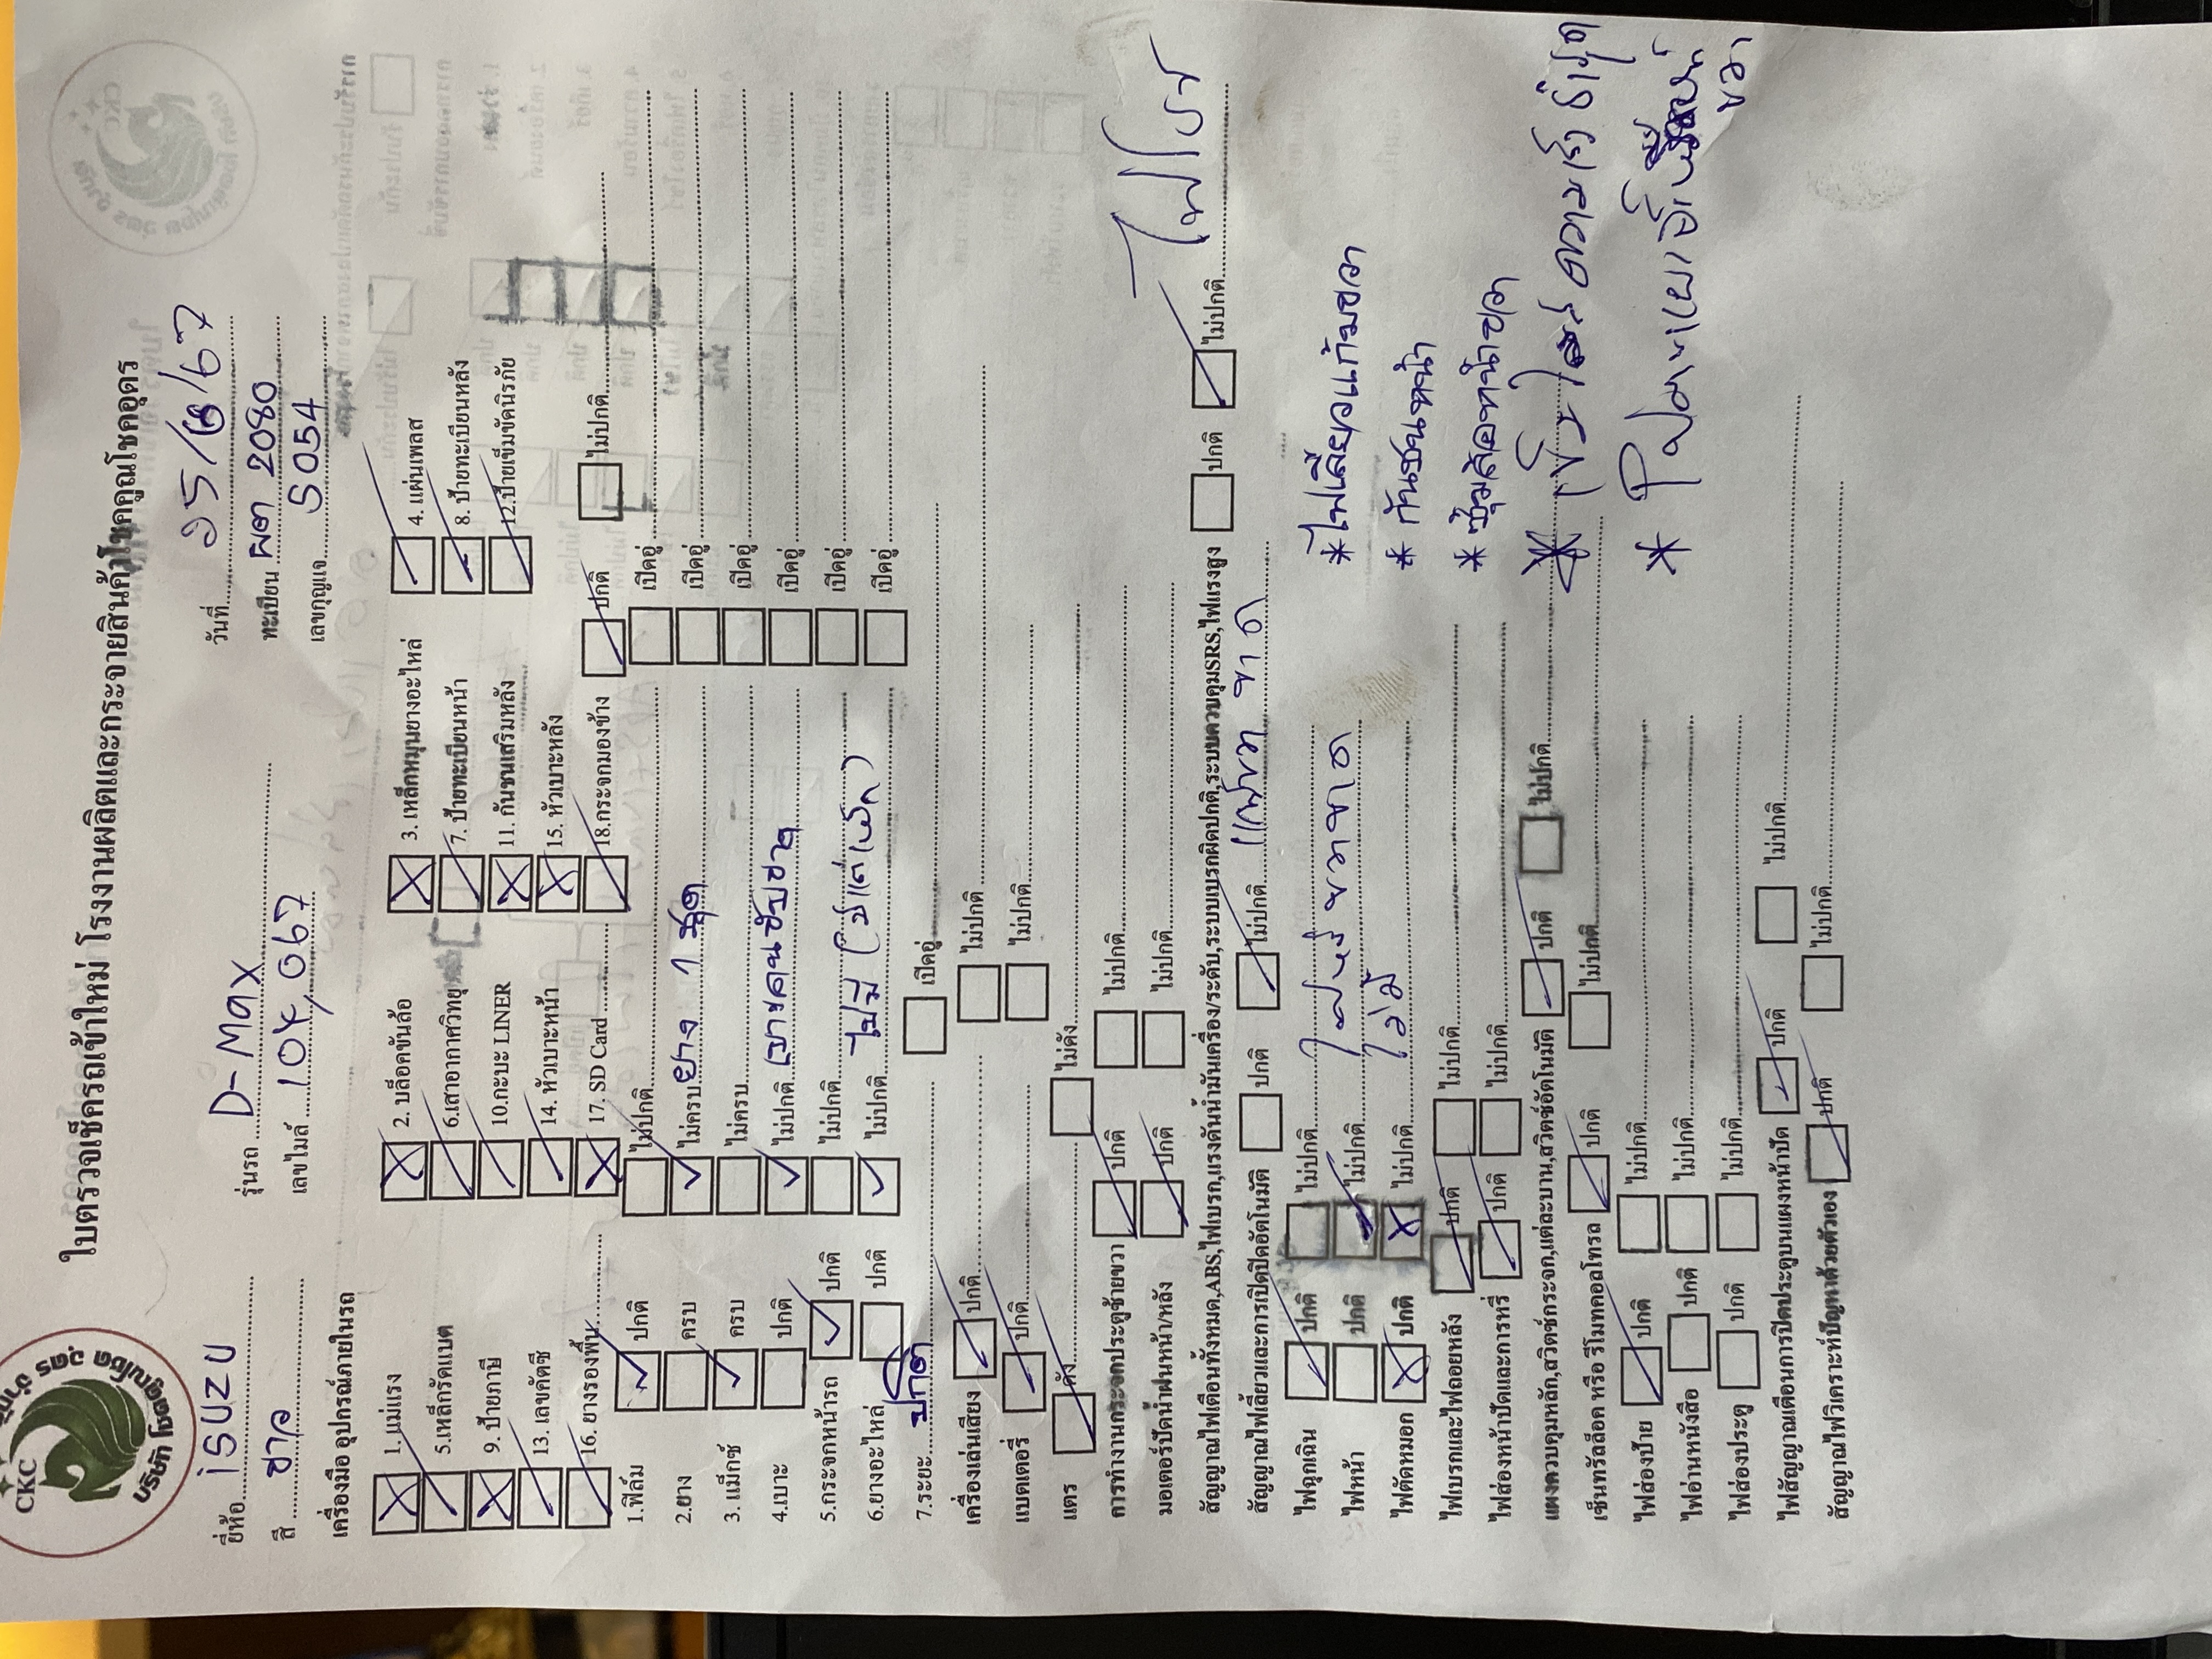 CKC
บริษัท โชคคูณโชค อุดร จำกัด
ใบตรวจเช็ครถเข้าใหม่ โรงงานผลิตและกระจายสินค้าโชคคูณโชคอุดร
ยี่ห้อ iSUZU รุ่นรถ D-Max วันที่
สี ขาว เลขไมล์ 104,067 ทะเบียน ผต 2080
เลขกุญแจ S054
เครื่องมือ อุปกรณ์ภายในรถ
1. แม่แรง 2. บล็อคขันล้อ 3. เหล็กหมุนยางอะไหล่ 4. แผ่นเพลส
5.เหล็กกรัดแบต 6.เสาอากาศวิทยุ 7. ป้ายทะเบียนหน้า 8. ป้ายทะเบียนหลัง
9. ป้ายภาษี 10.กะบะ LINER 11. กันชนเสริมหลัง 12.ป้ายเข็มขัดนิรภัย
13. เลขคัตซี 14. หัวเบาะหน้า 15. หัวเบาะหลัง
16. ยางรองพื้น 17. SD Card 18.กระจกมองข้าง ปกติ ไม่ปกติ
1.ฟิล์ม ปกติ ไม่ปกติ เปิดอู่
2.ยาง ครบ ไม่ครบ ยาง 1 ชุด เปิดอู่
3. แม็กซ์ ครบ ไม่ครบ เปิดอู่
4.เบาะ ปกติ ไม่ปกติ เบาะคนขับขาด เปิดอู่
5.กระจกหน้ารถ ปกติ ไม่ปกติ เปิดอู่
6.ยางอะไหล่ ปกติ ไม่ปกติ ไม่มี เปิดอู่
7.ระยะ ปกติ เปิดอู่
เครื่องเล่นเสียง ปกติ ไม่ปกติ
แบตเตอรี่ ปกติ ไม่ปกติ
แตร ดัง ไม่ดัง
การทำงานกระจกประตูซ้ายขวา ปกติ ไม่ปกติ
มอเตอร์ปัดน้ำฝนหน้า/หลัง ปกติ ไม่ปกติ
สัญญาณไฟเตือนทั้งหมด,ABS,ไฟเบรก,แรงดันน้ำมันเครื่อง/ระดับ,ระบบเบรกผิดปกติ,ระบบควบคุมSRS,ไฟแรงสูง ปกติ ไม่ปกติ ไฟโชว์
สัญญาณไฟเลี้ยวและการเปิดปิดอัตโนมัติ ปกติ ไม่ปกติ
ไฟฉุกเฉิน ปกติ ไม่ปกติ
ไฟหน้า ปกติ ไม่ปกติ
ไฟตัดหมอก ปกติ ไม่ปกติ ไม่มี
ไฟเบรกและไฟถอยหลัง ปกติ ไม่ปกติ
ไฟส่องหน้าปัดและการหรี่ ปกติ ไม่ปกติ
แผงควบคุมหลัก,สวิตซ์กระจก,แต่ละบาน,สวิตซ์อัตโนมัติ ปกติ ไม่ปกติ
เซ็นทรัลล็อค หรือ รีโมทคอลโทรล ปกติ ไม่ปกติ
ไฟส่องป้าย ปกติ ไม่ปกติ
ไฟอ่านหนังสือ ปกติ ไม่ปกติ
ไฟส่องประตู ปกติ ไม่ปกติ
ไฟสัญญาณเตือนการปิดประตูบนแผงหน้าปัด ปกติ ไม่ปกติ
สัญญาณไฟวิเคราะห์ปัญหาด้วยตัวเอง ปกติ ไม่ปกติ
* ไฟเลี้ยวแก้มขวา
* กันชนหน้า
* ซุ้มล้อหน้าขวา
ขวา